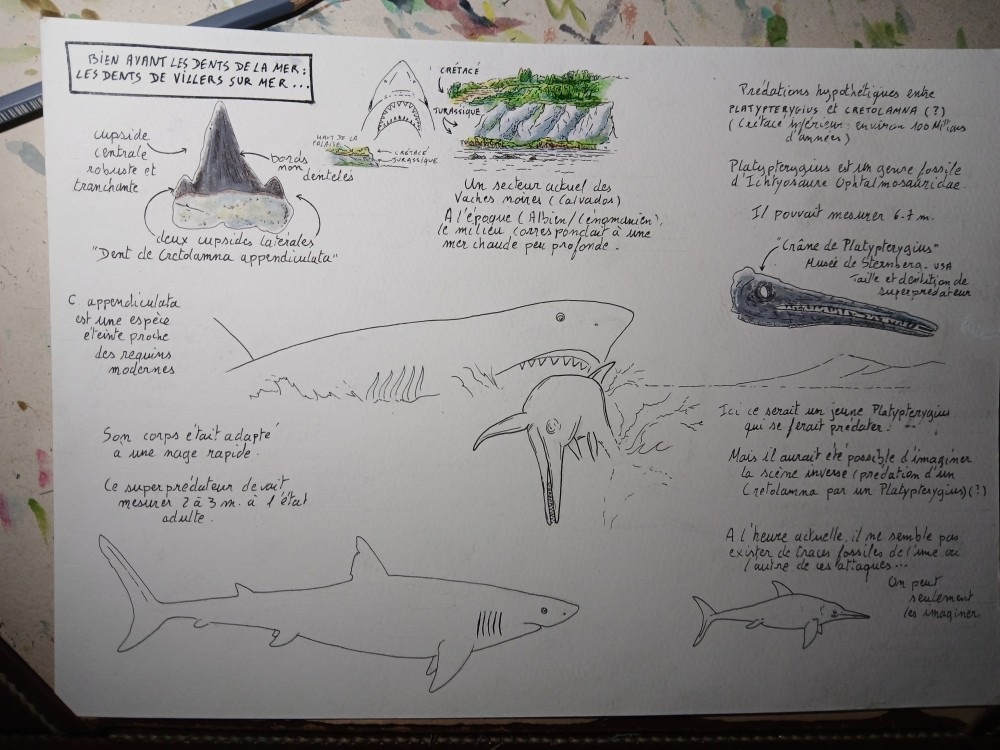 BIEN AVANT LES DENTS DE LA MER :
LES DENTS DE VILLERS SUR MER ...
cupside
centrale
robuste et
tranchante
bords
non
dentelés
deux cupsides latérales
"Dent de Cretolamna appendiculata"
CRÉTACÉ
JURASSIQUE
HAUT DE LA
FALAISE
CRÉTACÉ
JURASSIQUE
Un secteur actuel des
Vaches noires (Calvados)
A l'époque (Albien/Cénomanien),
le milieu correspondait à une
mer chaude peu profonde.
Prédations hypothétiques entre
PLATYPTERYGIUS et CRETOLAMNA (?)
(Crétacé inférieur : environ 100 Millions
d'années)
Platypterygius est un genre fossile
d'Ichtyosaure Ophtalmosauridae.
Il pouvait mesurer 6-7 m.
"Crâne de Platypterygius"
Musée de Sternberg. USA
Taille et dentition de
superprédateur
C. appendiculata
est une espèce
éteinte proche
des requins
modernes
Son corps était adapté
a une nage rapide.
Ce superprédateur devait
mesurer 2 à 3 m. à l'état
adulte.
Ici ce serait un jeune Platypterygius
qui se ferait prédater.
Mais il aurait été possible d'imaginer
la scène inverse (prédation d'un
Cretolamna par un Platypterygius) (?)
A l'heure actuelle, il ne semble pas
exister de traces fossiles de l'une ou
l'autre de ces attaques...
On peut
seulement
les imaginer